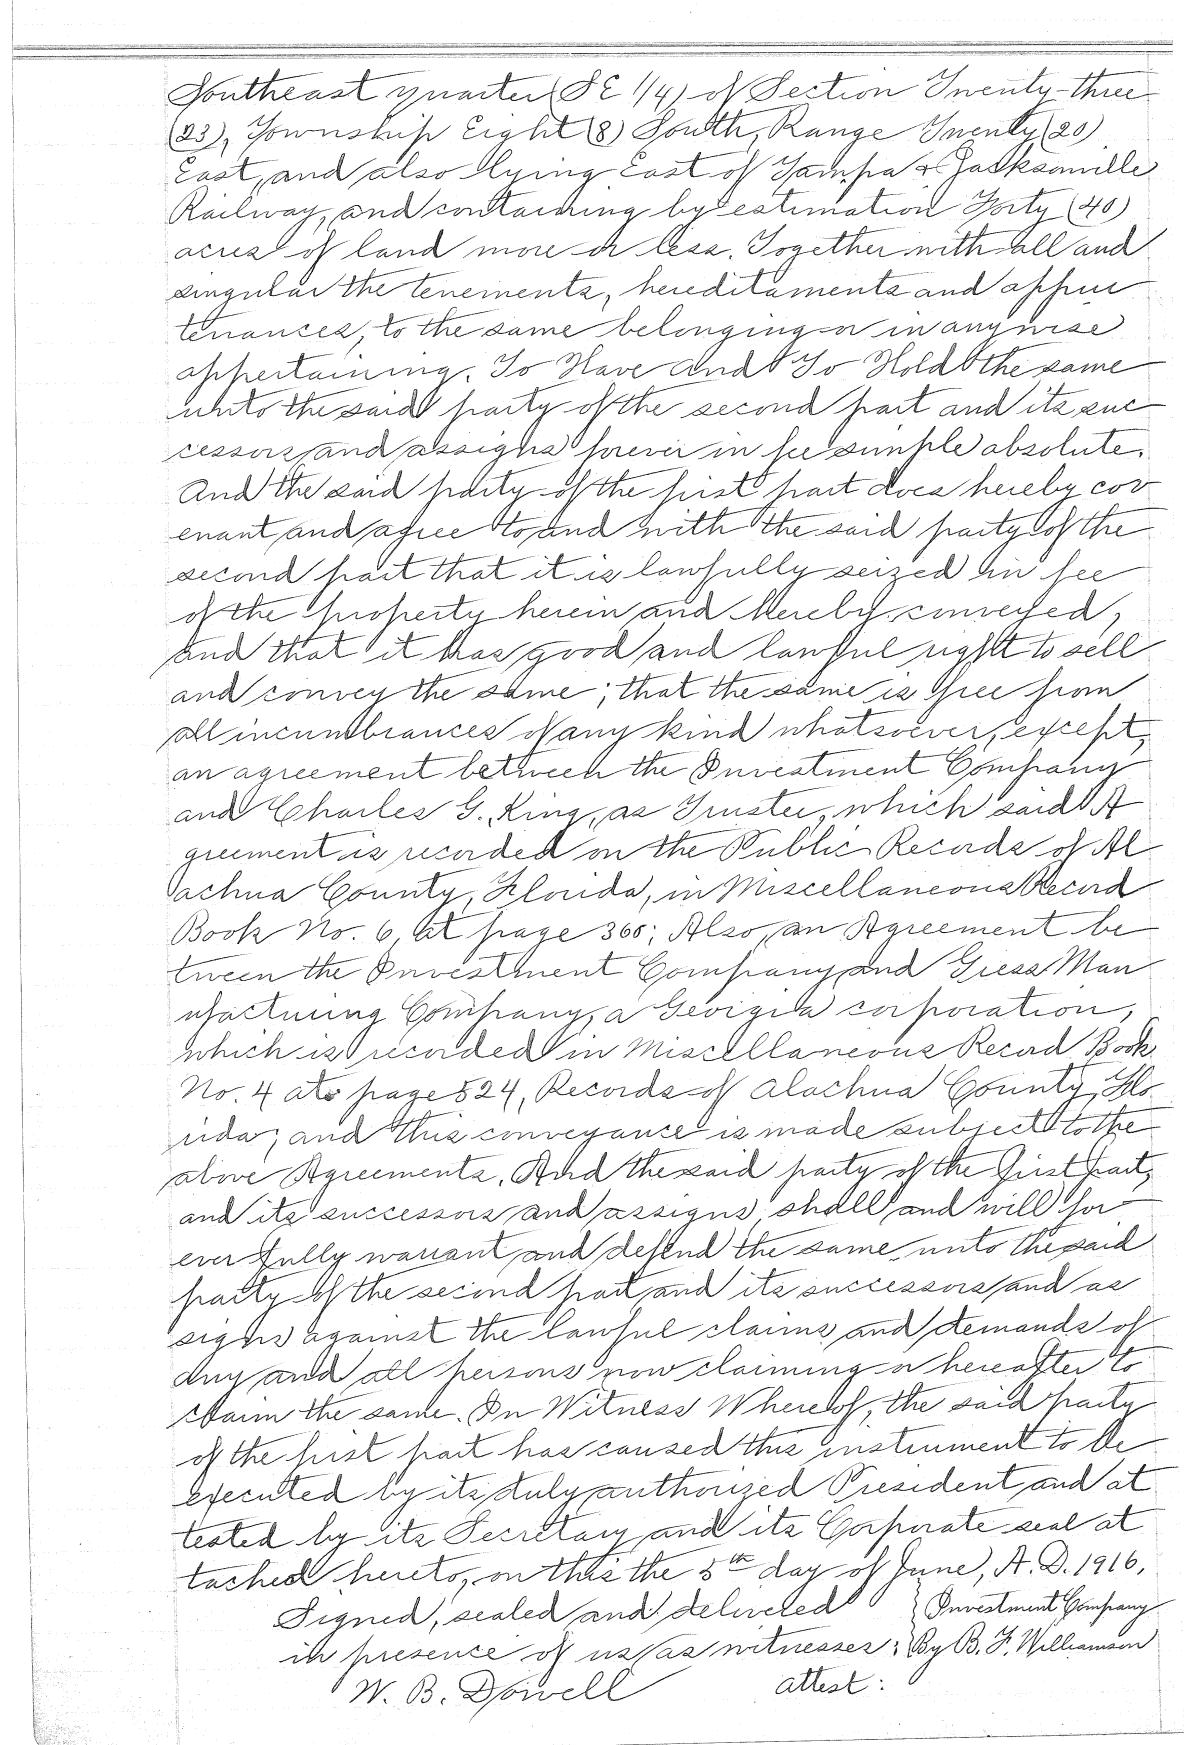 Southeast quarter (SE 1/4) of Section Twenty-three
(23), Township Eight (8) South, Range Twenty (20)
East, and also lying East of Tampa & Jacksonville
Railway, and containing by estimation Forty (40)
acres of land more or less. Together with all and
singular the tenements, hereditaments and appur
tenances, to the same belonging or in anywise
appertaining. To Have and To Hold the same
unto the said party of the second part and its suc
cessors and assigns forever in fee simple absolute.
And the said party of the first part does hereby cov
enant and agree to and with the said party of the
second part that it is lawfully seized in fee
of the property herein and hereby conveyed,
and that it has good and lawful right to sell
and convey the same; that the same is free from
all incumbrances of any kind whatsoever, except,
an agreement between the Investment Company
and Charles G. King, as Trustee, which said A
greement is recorded on the Public Records of Al
achua County, Florida, in Miscellaneous Record
Book No. 6, at page 360; Also, an Agreement be
tween the Investment Company and Giess Man
ufacturing Company, a Georgia corporation,
which is recorded in Miscellaneous Record Book
No. 4 at page 524, Records of Alachua County, Flo
rida; and this conveyance is made subject to the
above Agreements. And the said party of the first part,
and its successors and assigns, shall and will for
ever fully warrant and defend the same unto the said
party of the second part and its successors and as
signs against the lawful claims and demands of
any and all persons now claiming or hereafter to
claim the same. In Witness Whereof, the said party
of the first part has caused this instrument to be
executed by its duly authorized President and at
tested by its Secretary and its Corporate seal at
tached hereto, on this the 5th day of June, A. D. 1916.
Signed, sealed and delivered } Investment Company
in presence of us as witnesses: } By B. F. Williamson
W. B. Dowell attest: